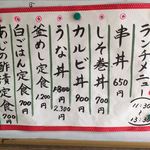 ランチメニュー
11:30
13:30
串丼 650円
しそ巻丼 700
カルビ丼 900
うな丼 1800円 2,300
釜めし定食 1200
白ごはん定食 700
あじの酢漬定食 700円